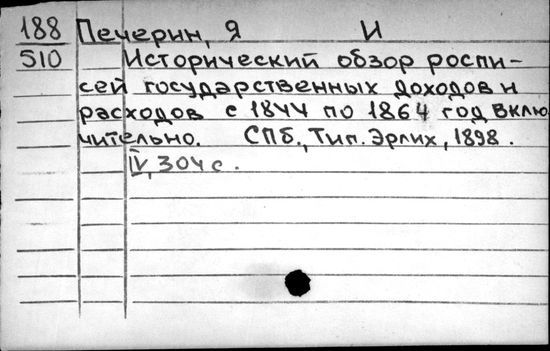 188 Печерин, Я И
510 Исторический обзор роспи-
сей государственных доходов и
расходов с 1844 по 1864 год вклю
чительно. СПб., Тип. Эрлих, 1898.
IV, 304 с.